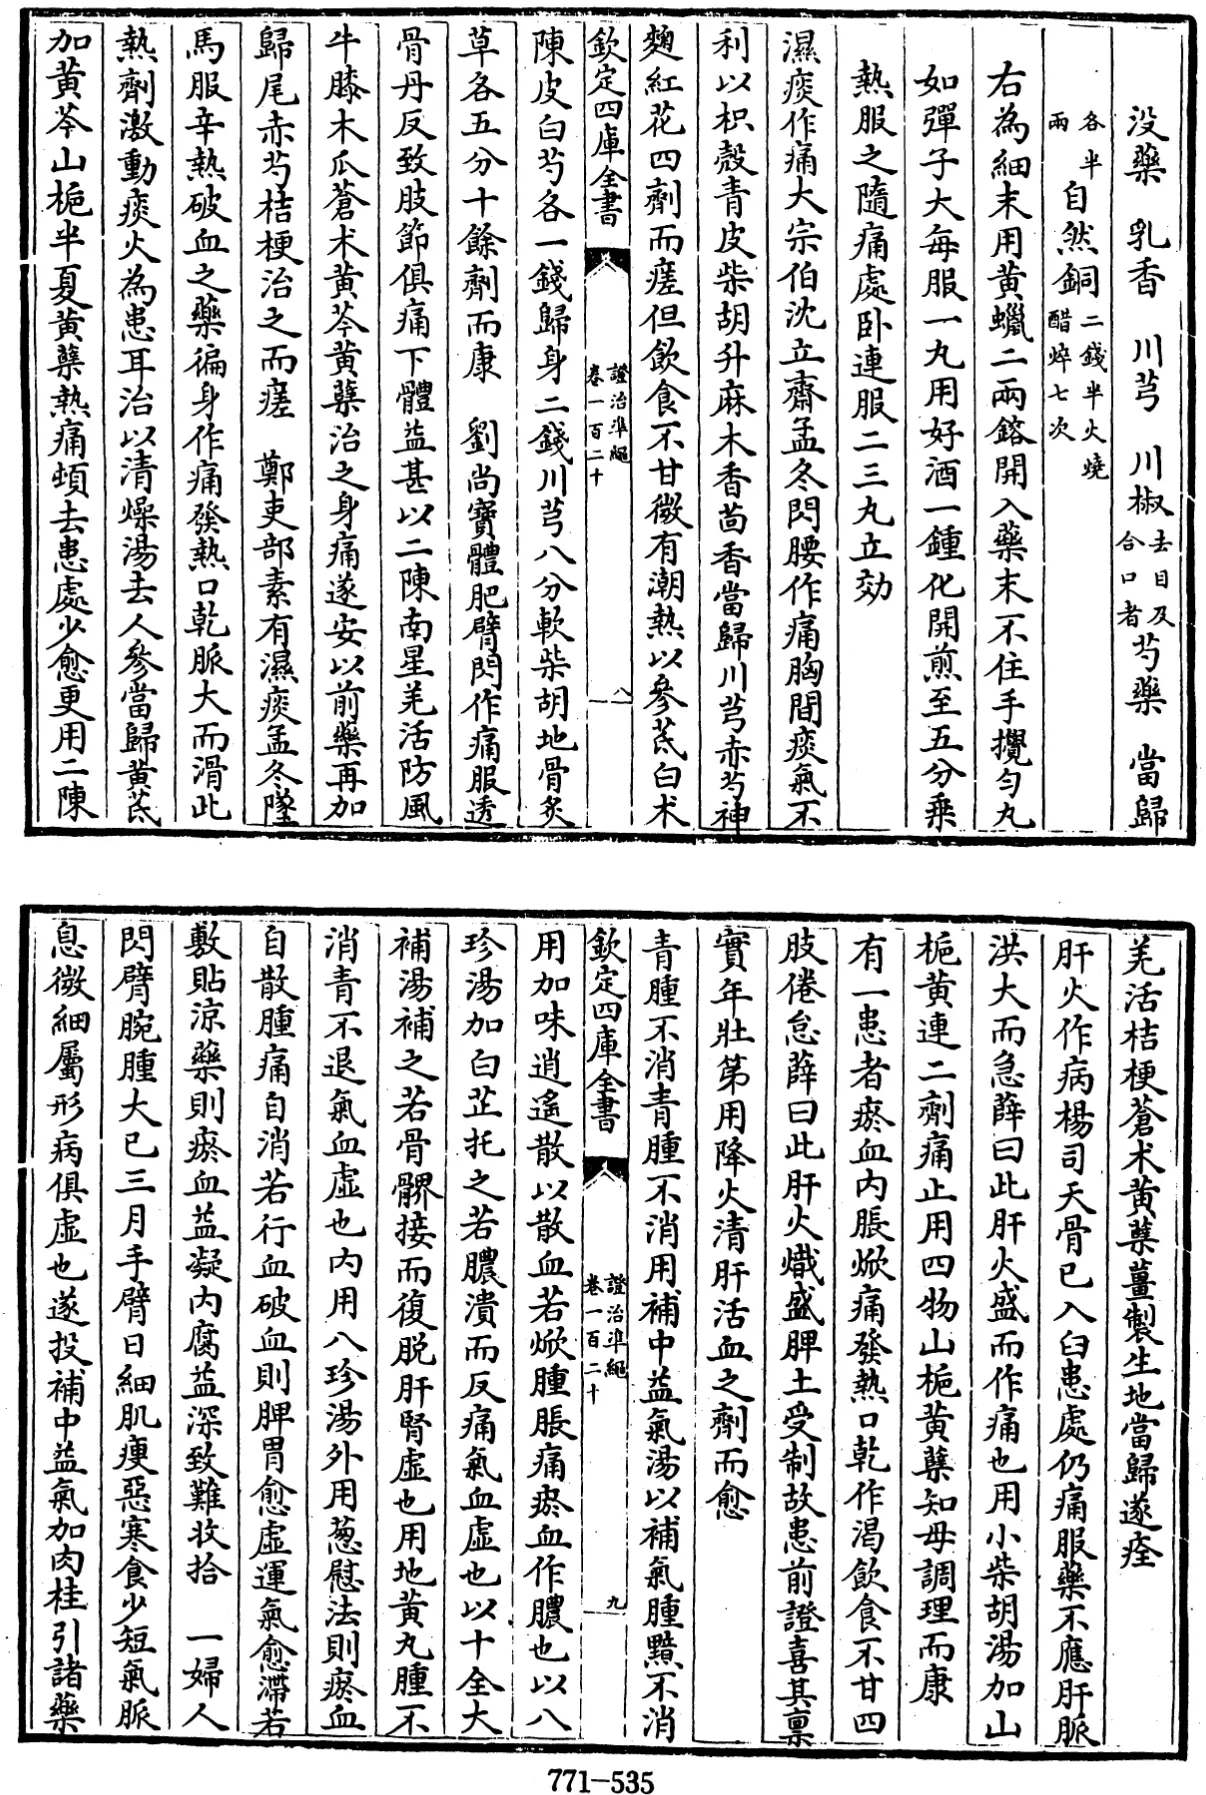 没藥　乳香　川芎　川椒去目及合口者芍藥　當歸
各半兩自然銅二錢半火燒醋焠七次
右為細末用黃蠟二兩鎔開入藥末不住手攪勻丸
如彈子大每服一丸用好酒一鍾化開煎至五分乘
熱服之隨痛處卧連服二三丸立効
濕痰作痛大宗伯沈立齋孟冬閃腰作痛胸間痰氣不
利以枳殼青皮柴胡升麻木香茴香當歸川芎赤芍神
麴紅花四劑而瘥但飲食不甘微有潮熱以參芪白术
欽定四庫全書　證治準繩卷一百二十　八
陳皮白芍各一錢歸身二錢川芎八分軟柴胡地骨炙
草各五分十餘劑而康　劉尚寶體肥臂閃作痛服透
骨丹反致肢節俱痛下體益甚以二陳南星羌活防風
牛膝木瓜蒼术黃芩黃蘗治之身痛遂安以前藥再加
歸尾赤芍桔梗治之而瘥　鄭吏部素有濕痰孟冬墜
馬服辛熱破血之藥徧身作痛發熱口乾脈大而滑此
熱劑激動痰火為患耳治以清燥湯去人參當歸黃芪
加黃芩山梔半夏黃蘗熱痛頓去患處少愈更用二陳
羌活桔梗蒼术黃蘗薑製生地當歸遂痊
肝火作病楊司天骨已入臼患處仍痛服藥不應肝脈
洪大而急薛曰此肝火盛而作痛也用小柴胡湯加山
梔黃連二劑痛止用四物山梔黃蘗知母調理而康
有一患者瘀血內脹焮痛發熱口乾作渴飲食不甘四
肢倦怠薛曰此肝火熾盛脾土受制故患前證喜其稟
實年壯第用降火清肝活血之劑而愈
青腫不消青腫不消用補中益氣湯以補氣腫黯不消
欽定四庫全書　證治準繩卷一百二十　九
用加味逍遙散以散血若焮腫脹痛瘀血作膿也以八
珍湯加白芷托之若膿潰而反痛氣血虛也以十全大
補湯補之若骨髎接而復脱肝腎虛也用地黃丸腫不
消青不退氣血虛也內用八珍湯外用葱慰法則瘀血
自散腫痛自消若行血破血則脾胃愈虛運氣愈滯若
敷貼涼藥則瘀血益凝內腐益深致難收拾　一婦人
閃臂腕腫大已三月手臂日細肌瘦惡寒食少短氣脈
息微細屬形病俱虛也遂投補中益氣加肉桂引諸藥
771-535